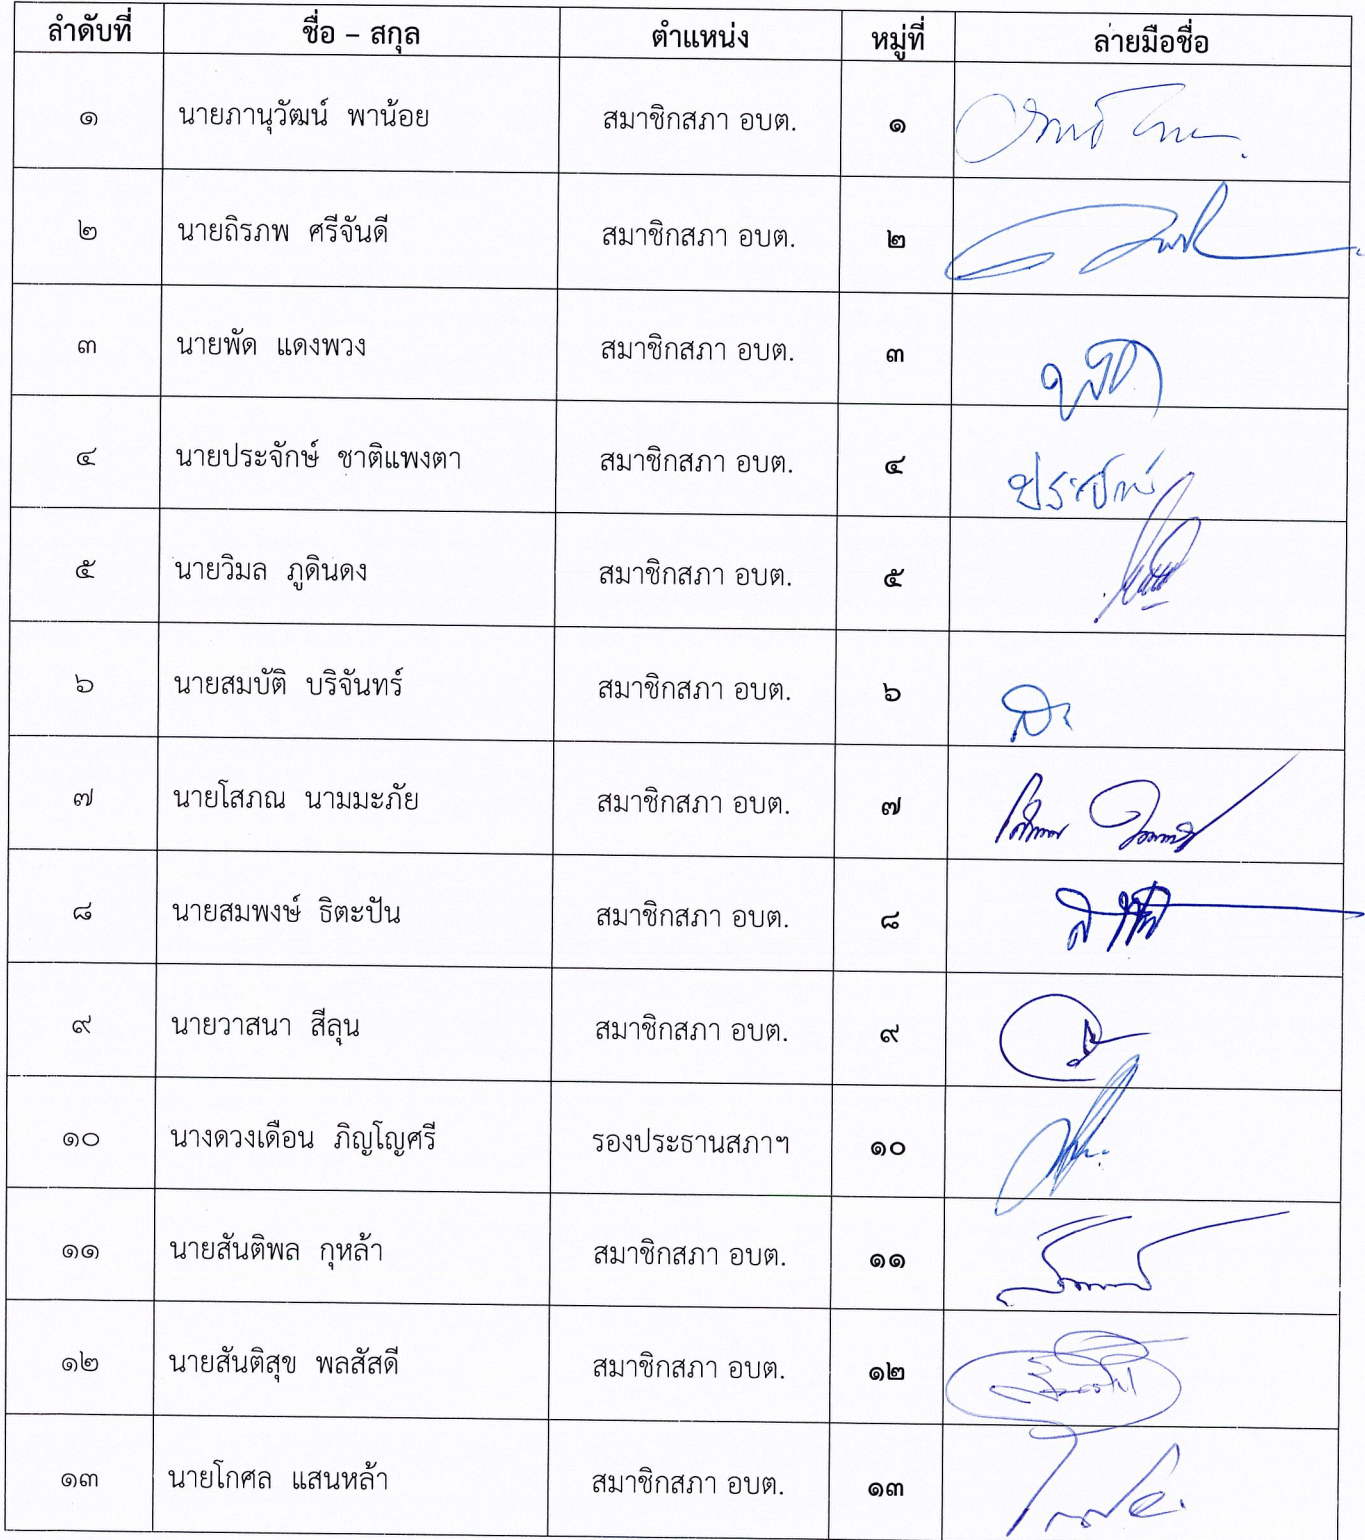 ลำดับที่ ชื่อ – สกุล ตำแหน่ง หมู่ที่ ลายมือชื่อ
๑ นายภานุวัฒน์ พาน้อย สมาชิกสภา อบต. ๑
๒ นายถิรภพ ศรีจันดี สมาชิกสภา อบต. ๒
๓ นายพัด แดงพวง สมาชิกสภา อบต. ๓
๔ นายประจักษ์ ชาติแพงตา สมาชิกสภา อบต. ๔ ประจักษ์
๕ นายวิมล ภูดินดง สมาชิกสภา อบต. ๕
๖ นายสมบัติ บริจันทร์ สมาชิกสภา อบต. ๖
๗ นายโสภณ นามมะภัย สมาชิกสภา อบต. ๗
๘ นายสมพงษ์ ธิตะปัน สมาชิกสภา อบต. ๘
๙ นายวาสนา สีลุน สมาชิกสภา อบต. ๙
๑๐ นางดวงเดือน ภิญโญศรี รองประธานสภาฯ ๑๐
๑๑ นายสันติพล กุหล้า สมาชิกสภา อบต. ๑๑
๑๒ นายสันติสุข พลสัสดี สมาชิกสภา อบต. ๑๒
๑๓ นายโกศล แสนหล้า สมาชิกสภา อบต. ๑๓